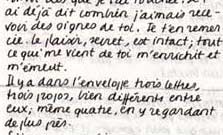 ai déjà dit combien j'aimais rece-
voir des signes de toi. Je t'en remer-
cie. Le plaisir, secret, est intact; tout
ce qui me vient de toi m'enrichit et
m'émeut.
Il y a dans l'enveloppe trois lettres,
trois papos, bien différents entre
eux; même quatre, en y regardant
de plus près.